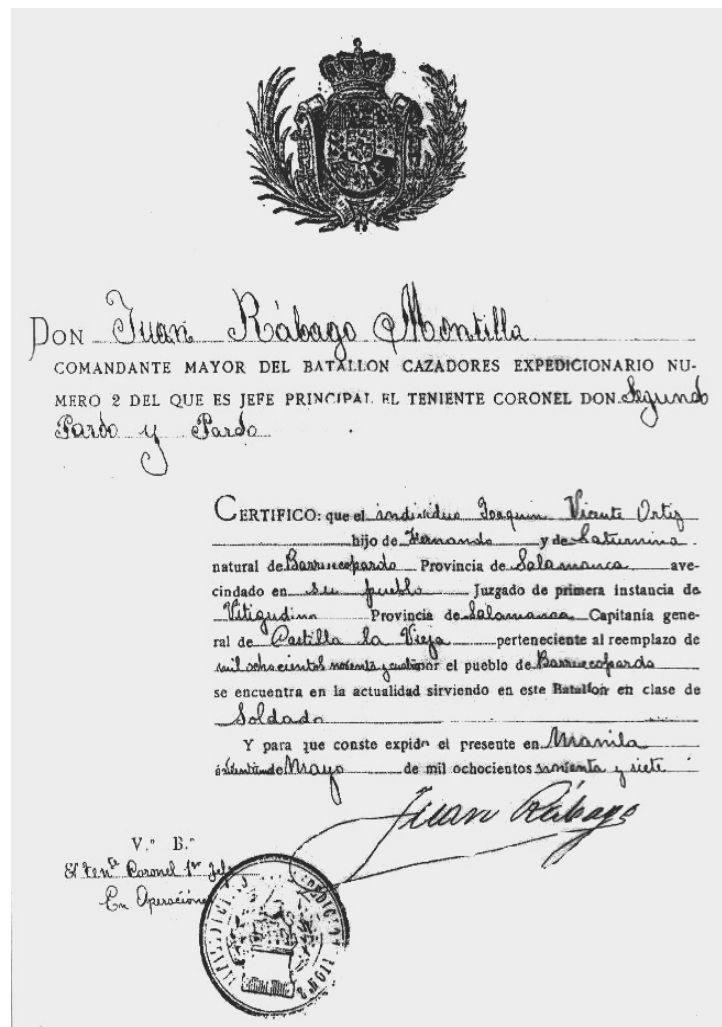 DON Juan Rábago Montilla
COMANDANTE MAYOR DEL BATALLON CAZADORES EXPEDICIONARIO NU-
MERO 2 DEL QUE ES JEFE PRINCIPAL EL TENIENTE CORONEL DON Segundo
Pardo y Pardo
CERTIFICO: que el individuo Joaquin Vicente Ortiz
hijo de Fernando y de Saturnina
natural de Barruecopardo Provincia de Salamanca ave-
cindado en su pueblo Juzgado de primera instancia de
Vitigudino Provincia de Salamanca Capitanía gene-
ral de Castilla la Vieja perteneciente al reemplazo de
mil ochocientos noventa y cuatro por el pueblo de Barruecopardo
se encuentra en la actualidad sirviendo en este Batallon en clase de
Soldado
Y para que conste expido el presente en Manila
de Mayo de mil ochocientos noventa y siete
Juan Rábago
V.º B.º
El tenᵉ Coronel 1ᵉʳ Jefe
En Operaciones